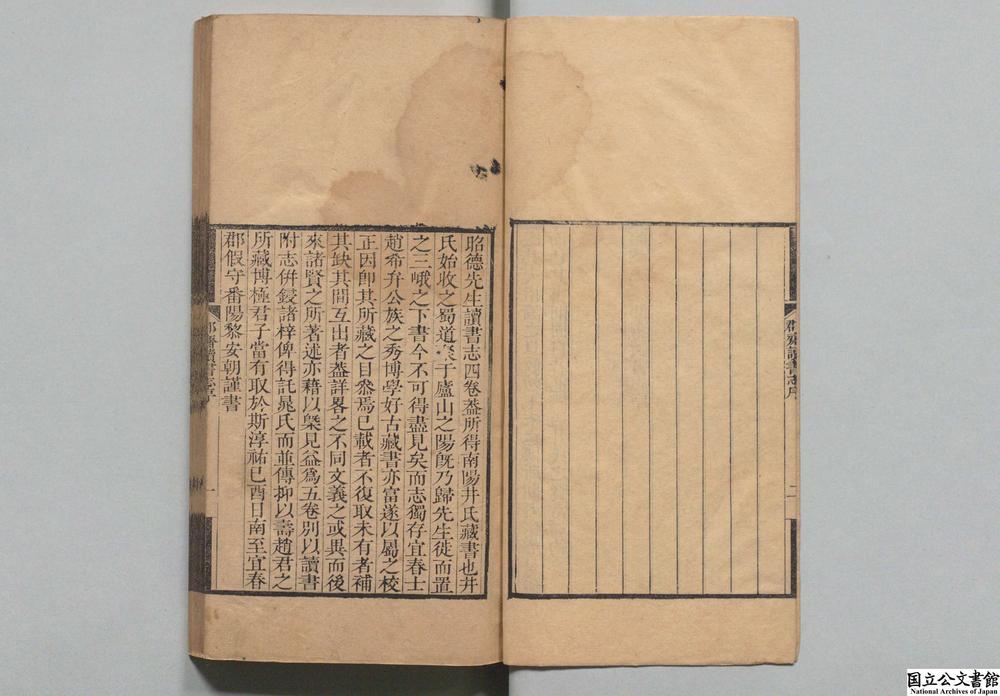 郡齋讀書志序
二
昭德先生讀書志四卷葢所得南陽井氏藏書也井
氏始收之蜀道于廬山之陽旣乃歸先生徙而置
之三峨之下書今不可得盡見矣而志獨存宜春士
趙希弁公族之秀博學好古藏書亦富遂以屬之校
正因卽其所藏之目叅焉已載者不復取未有者補
其缺其閒互出者葢詳畧之不同文義之或異而後
來諸賢之所著述亦藉以槩見益爲五卷別以讀書
附志倂鋟諸梓俾得託晁氏而並傳抑以壽趙君之
所藏博極君子當有取於斯淳祐己酉日南至宜春
郡假守番陽黎安朝謹書
郡齋讀書志序
一
国立公文書館
National Archives of Japan